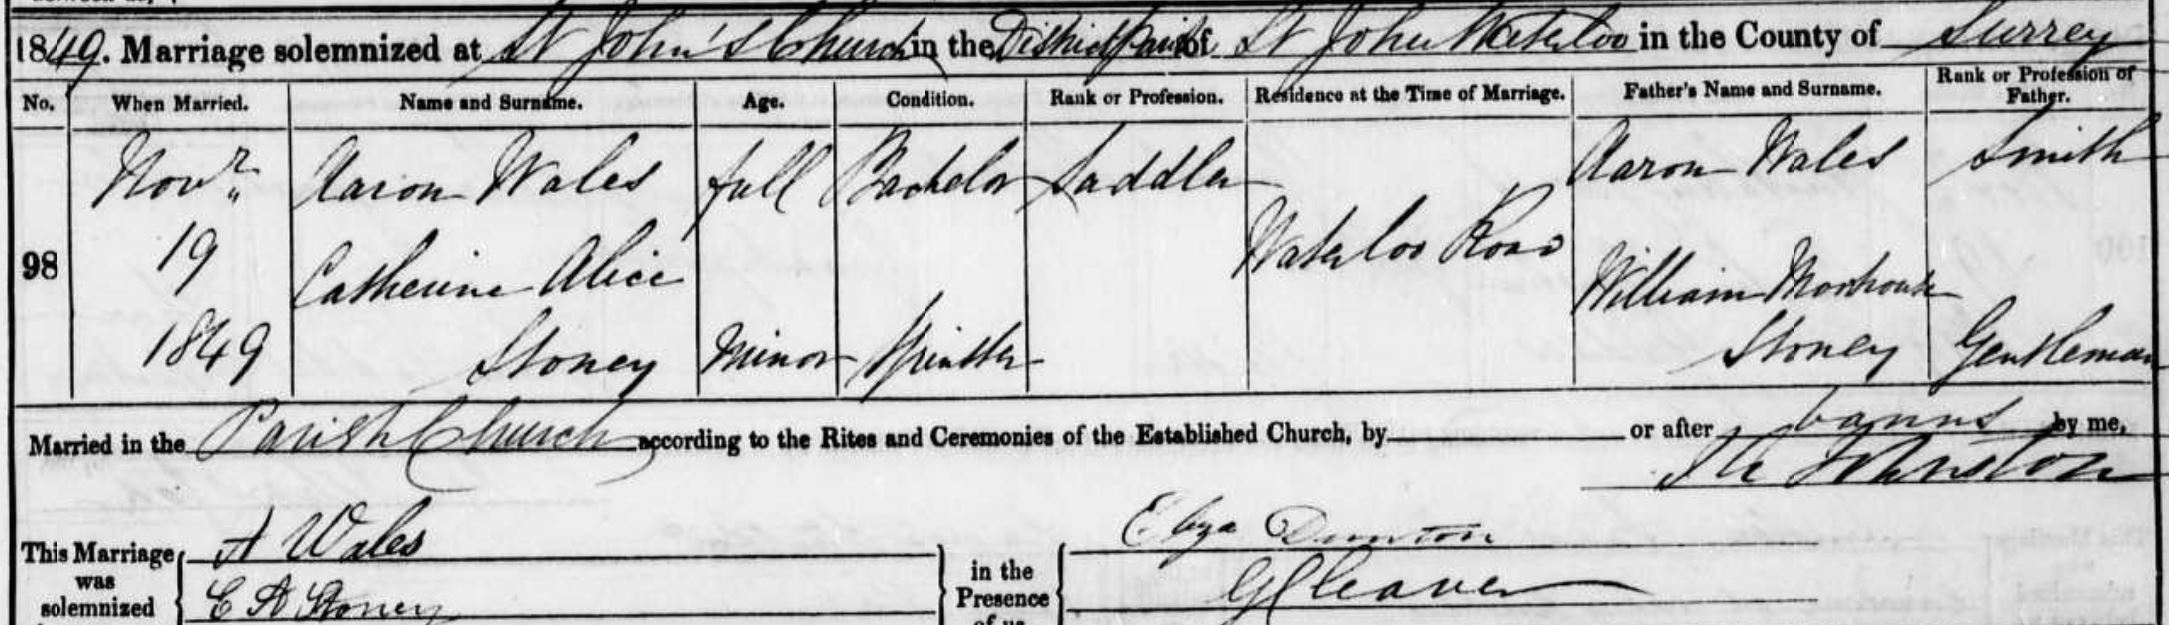 1849. Marriage solemnized at St John's Church in the District Parish of St John Waterloo in the County of Surrey
No. When Married. Name and Surname. Age. Condition. Rank or Profession. Residence at the Time of Marriage. Father's Name and Surname. Rank or Profession of Father.
Novr. Aaron Wales full Bachelor Saddler Aaron Wales Smith
98 19 Catherine Alice Waterloo Road William Moorhouse
1849 Stoney Minor Spinster Stoney Gentleman
Married in the Parish Church according to the Rites and Ceremonies of the Established Church, by or after banns by me,
Johnston
This Marriage A Wales in the Eliza Dunton
was
solemnized C A Stoney Presence G Cleaver
of us,